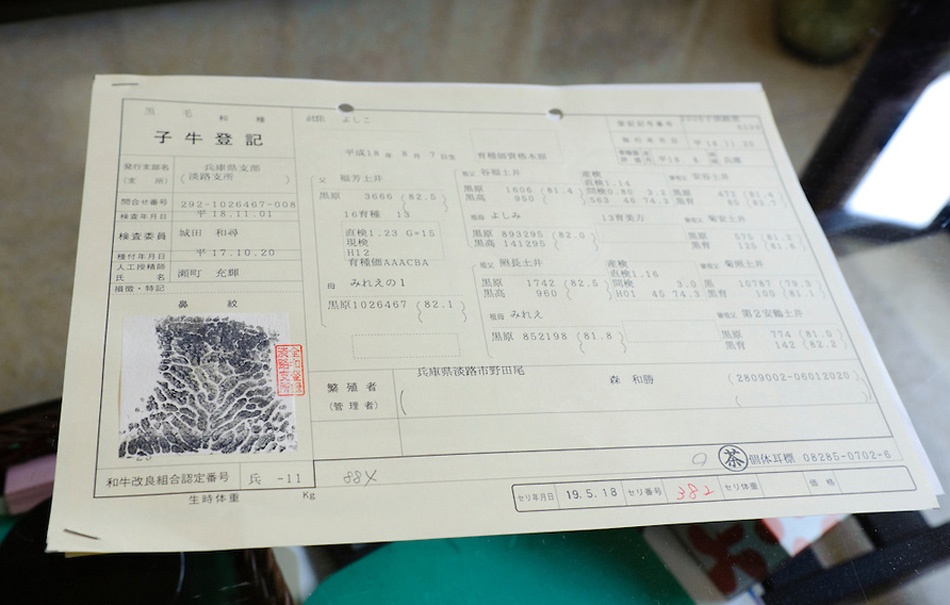 黒毛和種
子牛登記
名号 よしこ
平成18年 8月 7日生 育種師資格本原
登記記号番号
発行支部名 兵庫県支部
(支所) (淡路支所)
問合せ番号 292-1026467-008
検査年月日 平 18.11.01
検査委員 城田 和尋
種付年月日 平 17.10.20
人工授精師
氏名 瀬町 充輝
損徴・特記
鼻紋
父 福芳土井
黒原 3666 (82.5)
16育種 13
直検1.23 G=15
現検
H12
育種価AAACBA
母 みれえの1
黒原1026467 (82.1)
祖父 谷福土井 産検
直検1.14
黒原 1606 (81.4) 間検0.80 3.2
黒高 950 563 46 74.3
祖母 よしみ 13育美方
黒原 893295 (82.0)
黒高 141295
祖父 照長土井 産検
直検1.16
黒原 1742 (82.5) 間検 3.0
黒高 960 H01 45 74.3
祖母 みれえ
黒原 852198 (81.8)
安谷土井
黒原 472 (81.4)
黒育
菊安土井
黒原 575 (81.2)
黒育 125 (81.6)
菊照土井
黒原 10787 (79.3)
黒育 105 (81.1)
第2安鶴土井
黒原 774 (81.0)
黒育 142 (82.2)
兵庫県淡路市野田尾
繁殖者 森 和勝 (2809002-06012020)
(管理者)
和牛改良組合認定番号 兵 -11
88X
生時体重 Kg
茶 個体耳標 08285-0702-6
セリ年月日 19.5.18 セリ番号 382 セリ体重 価格